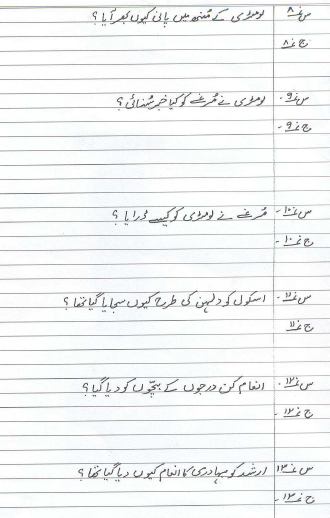 س نمبر ۸ لومڑی کے منھ میں پانی کیوں بھر آیا؟
ج نمبر ۸
س نمبر ۹- لومڑی نے مُرغے کو کیا خبر سُنائی؟
ج نمبر ۹-
س نمبر ۱۰- مُرغے نے لومڑی کو کیسے ڈرایا؟
ج نمبر ۱۰-
س نمبر ۱۱- اسکول کو دلہن کی طرح کیوں سجایا گیا تھا؟
ج نمبر ۱۱
س نمبر ۱۲- انعام کن درجوں کے بچّوں کو دیا گیا؟
ج نمبر ۱۲-
س نمبر ۱۳ ارشد کو بہادری کا انعام کیوں دیا گیا تھا؟
ج نمبر ۱۳-